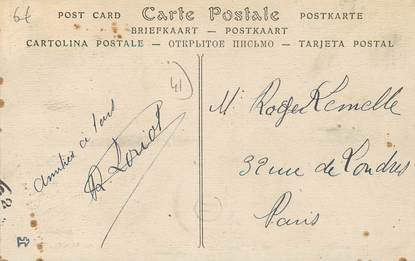 64
POST CARD Carte Postale POSTKARTE
BRIEFKAART — POSTKAART
CARTOLINA POSTALE — ОТКРЫТОЕ ПИСЬМО — TARJETA POSTAL
41
amitiés à tous
Loriot
Mr Roger Kemelle
32 rue de Londres
Paris